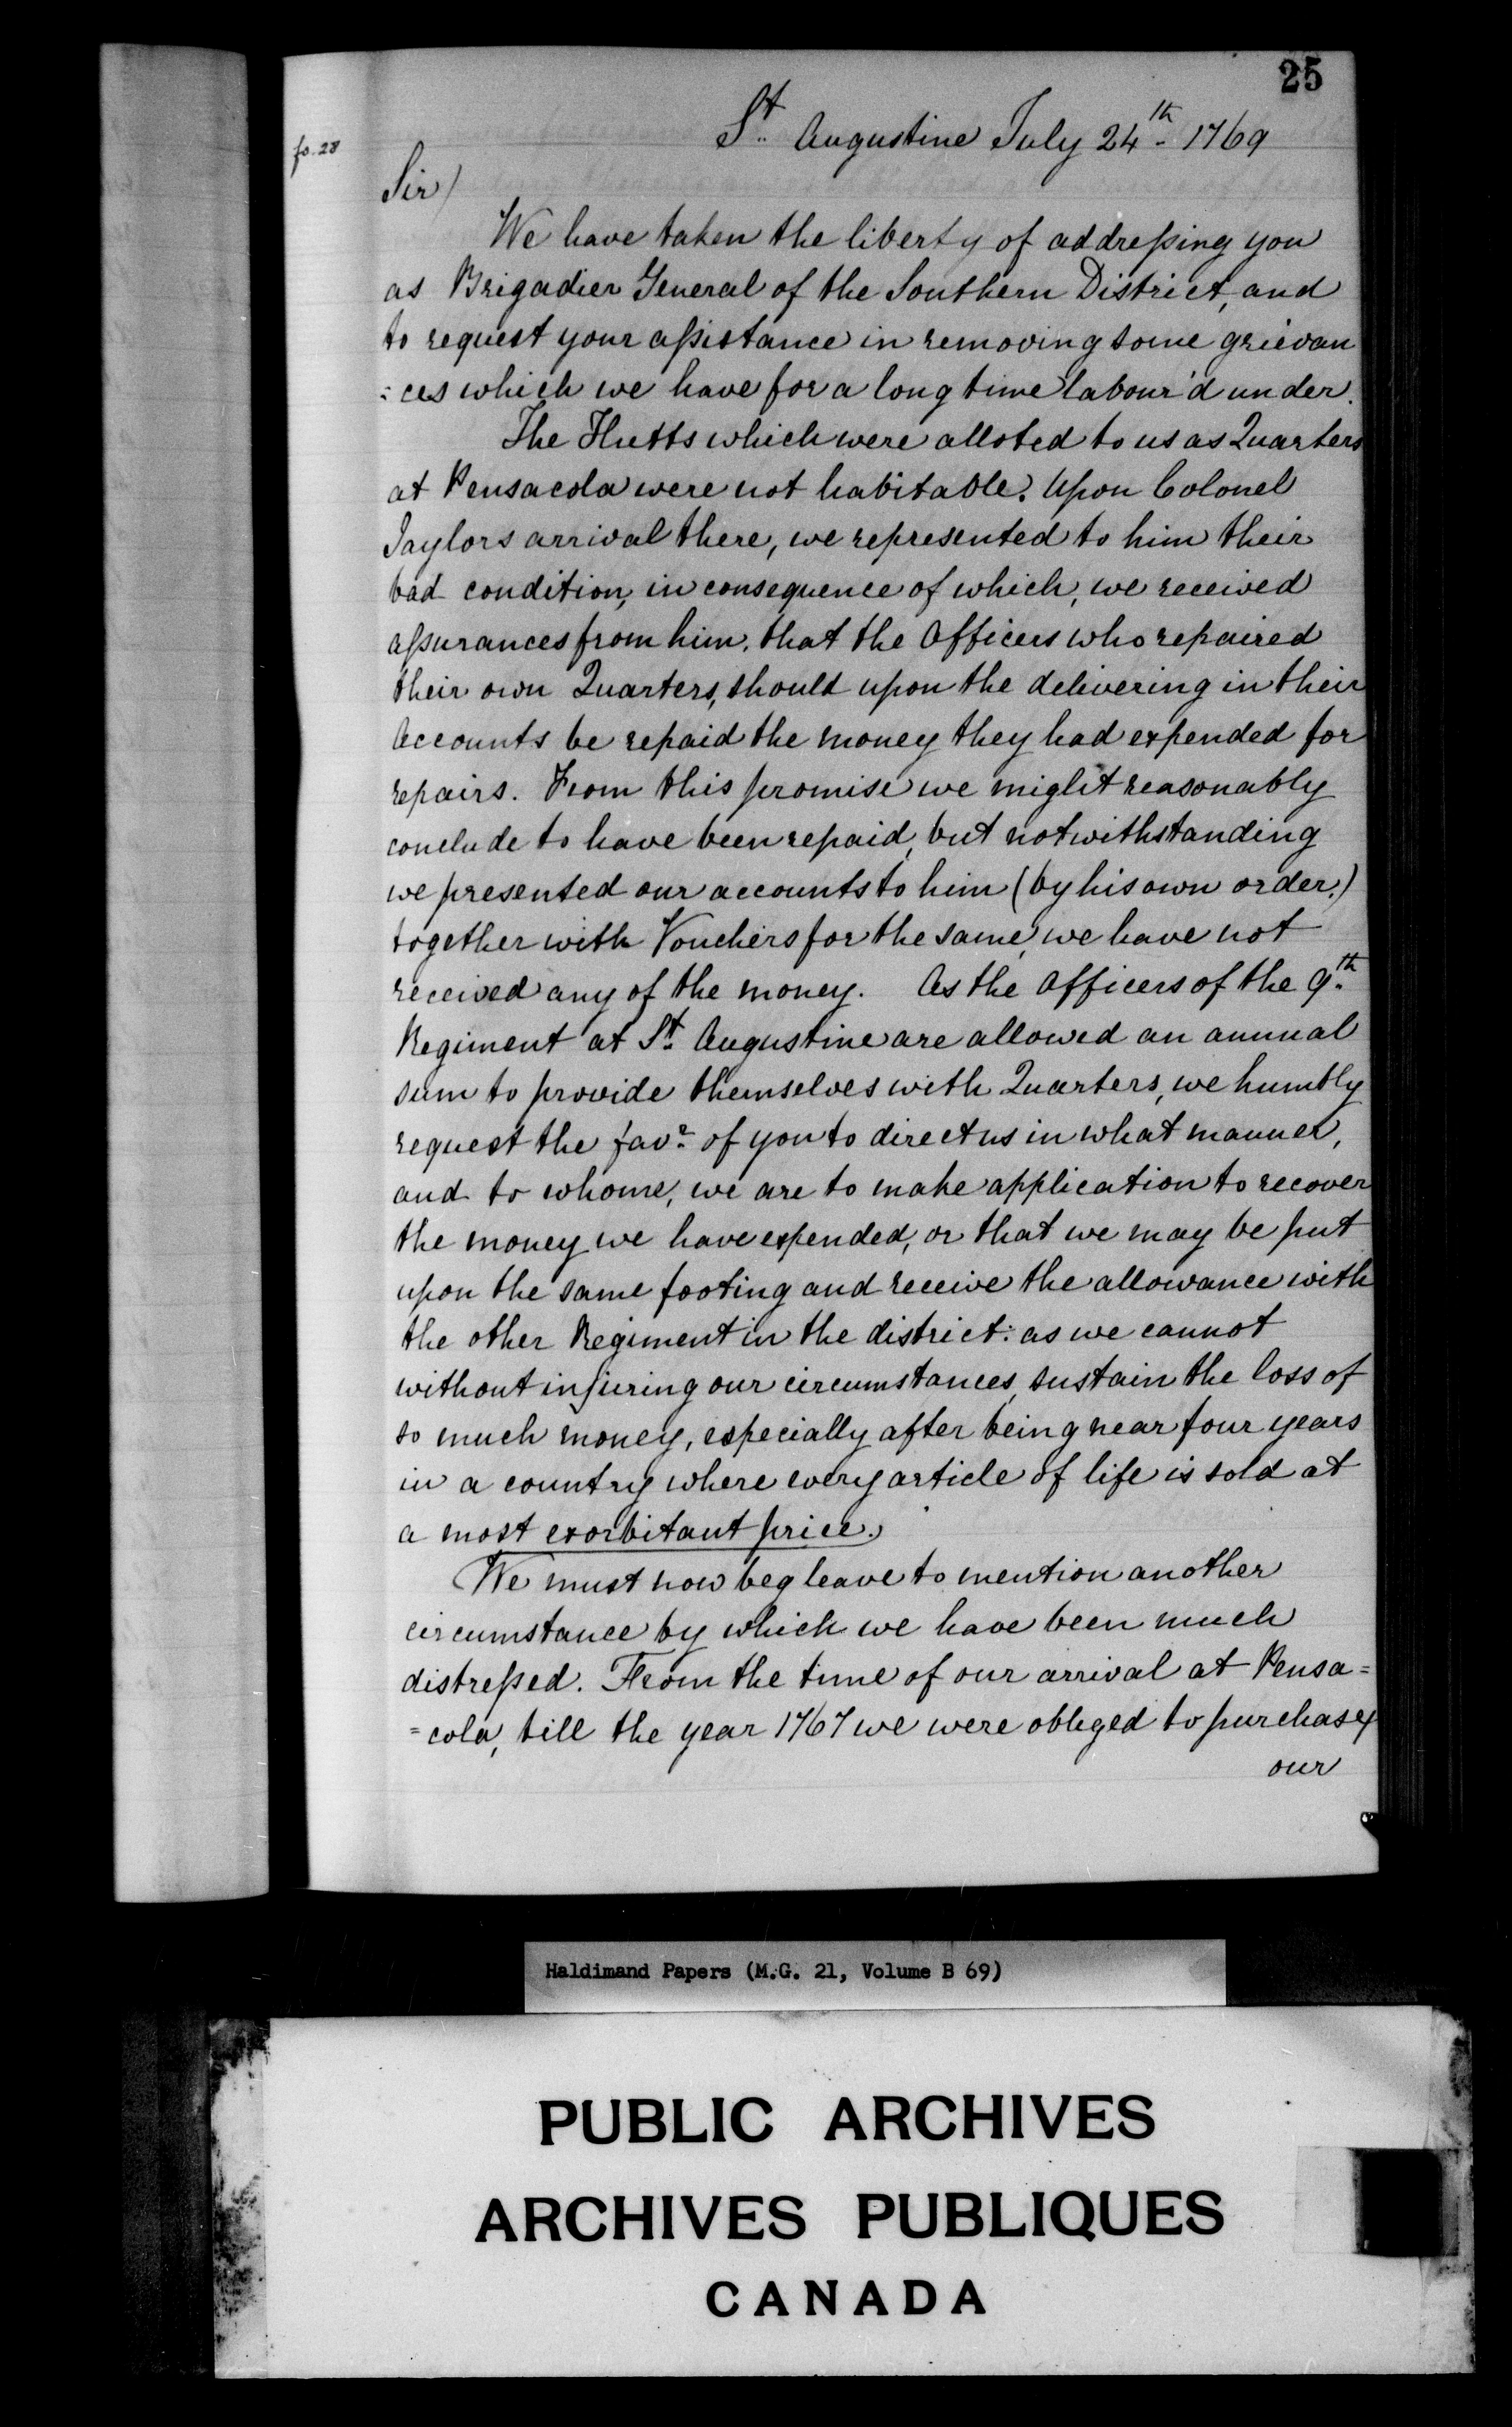 25
St. Augustine July 24th - 1769
fo. 28
Sir/
We have taken the liberty of addreſsing you
as Brigadier General of the Southern District, and
to request your aſsistance in removing some grievan
: ces which we have for a long time labour'd under.
The Hutts which were alloted to us as Quarters
at Pensacola were not habitable. Upon Colonel
Taylors arrival there, we represented to him their
bad condition, in consequence of which, we received
aſsurances from him, that the Officers who repaired
their own Quarters, should upon the delivering in their
Accounts be repaid the money they had expended for
repairs. From this promise we might reasonably
conclude to have been repaid, but notwithstanding
we presented our accounts to him (by his own order.)
together with Vouchers for the same, we have not
received any of the money. As the Officers of the 9th.
Regiment at St. Augustine are allowed an annual
sum to provide themselves with Quarters, we humbly
request the favr. of you to direct us in what manner,
and to whome, we are to make application to recover
the money we have expended, or that we may be put
upon the same footing and receive the allowance with
the other Regiment in the district: as we cannot
without injuring our circumstances, sustain the loss of
so much money, especially after being near four years
in a country where every article of life is sold at
a most exorbitant price.
We must now beg leave to mention another
circumstance by which we have been much
distreſsed. From the time of our arrival at Pensa=
=cola, till the year 1767 we were obliged to purchase
our
Haldimand Papers (M.G. 21, Volume B 69)
PUBLIC ARCHIVES
ARCHIVES PUBLIQUES
CANADA